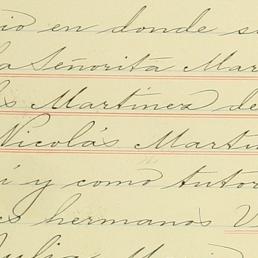 io en donde s
la Señorita Mar
ls Martínez de
Nicolás Martí
í y como tutor
es hermanos V